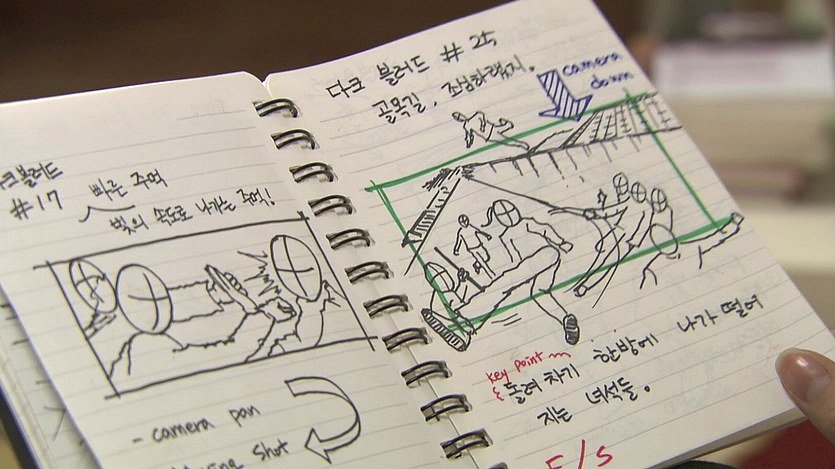 다크 블러드
#17 빠른 주먹
빛의 속도로 나가는 주먹!
- camera pan
shot
다크 블러드 #25
골목길, 조심하랬지.
camera
down
key point
돌려차기 한방에 나가 떨어
지는 녀석들.
F/s